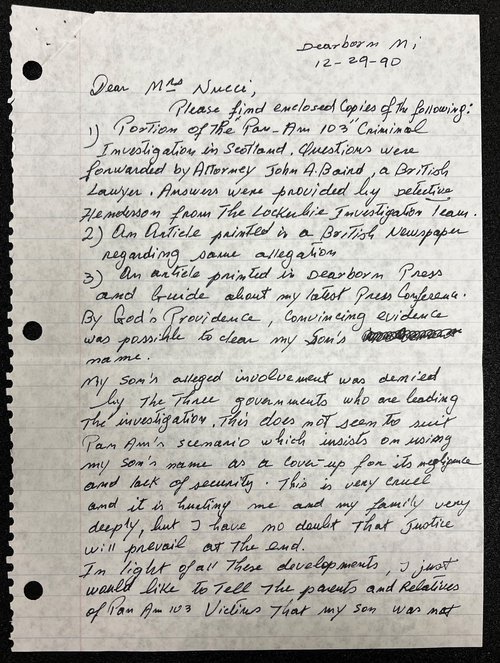 Dearborn Mi
12-29-90
Dear Mrs Nucci,
Please find enclosed Copies of the following:
1) Portion of the Pan-Am 103 "Criminal
Investigation in Scotland. Questions were
forwarded by Attorney John A. Baird, a British
Lawyer. Answers were provided by detective
Henderson from The Lockerbie Investigation Team.
2) An Article printed in a British Newspaper
regarding same allegation
3) An article printed in Dearborn Press
and Guide about my latest Press Conference.
By God's Providence, convincing evidence
was possible to clear my Son's
name.
My son's alleged involvement was denied
by The Three governments who are leading
The investigation. This does not seem to suit
Pan Am's scenario which insists on using
my son's name as a cover-up for its negligence
and lack of security. This is very cruel
and it is hurting me and my family very
deeply, but I have no doubt That justice
will prevail at The end.
In light of all These developments, I just
would like to Tell The parents and Relatives
of Pan Am 103 Victims That my son was not